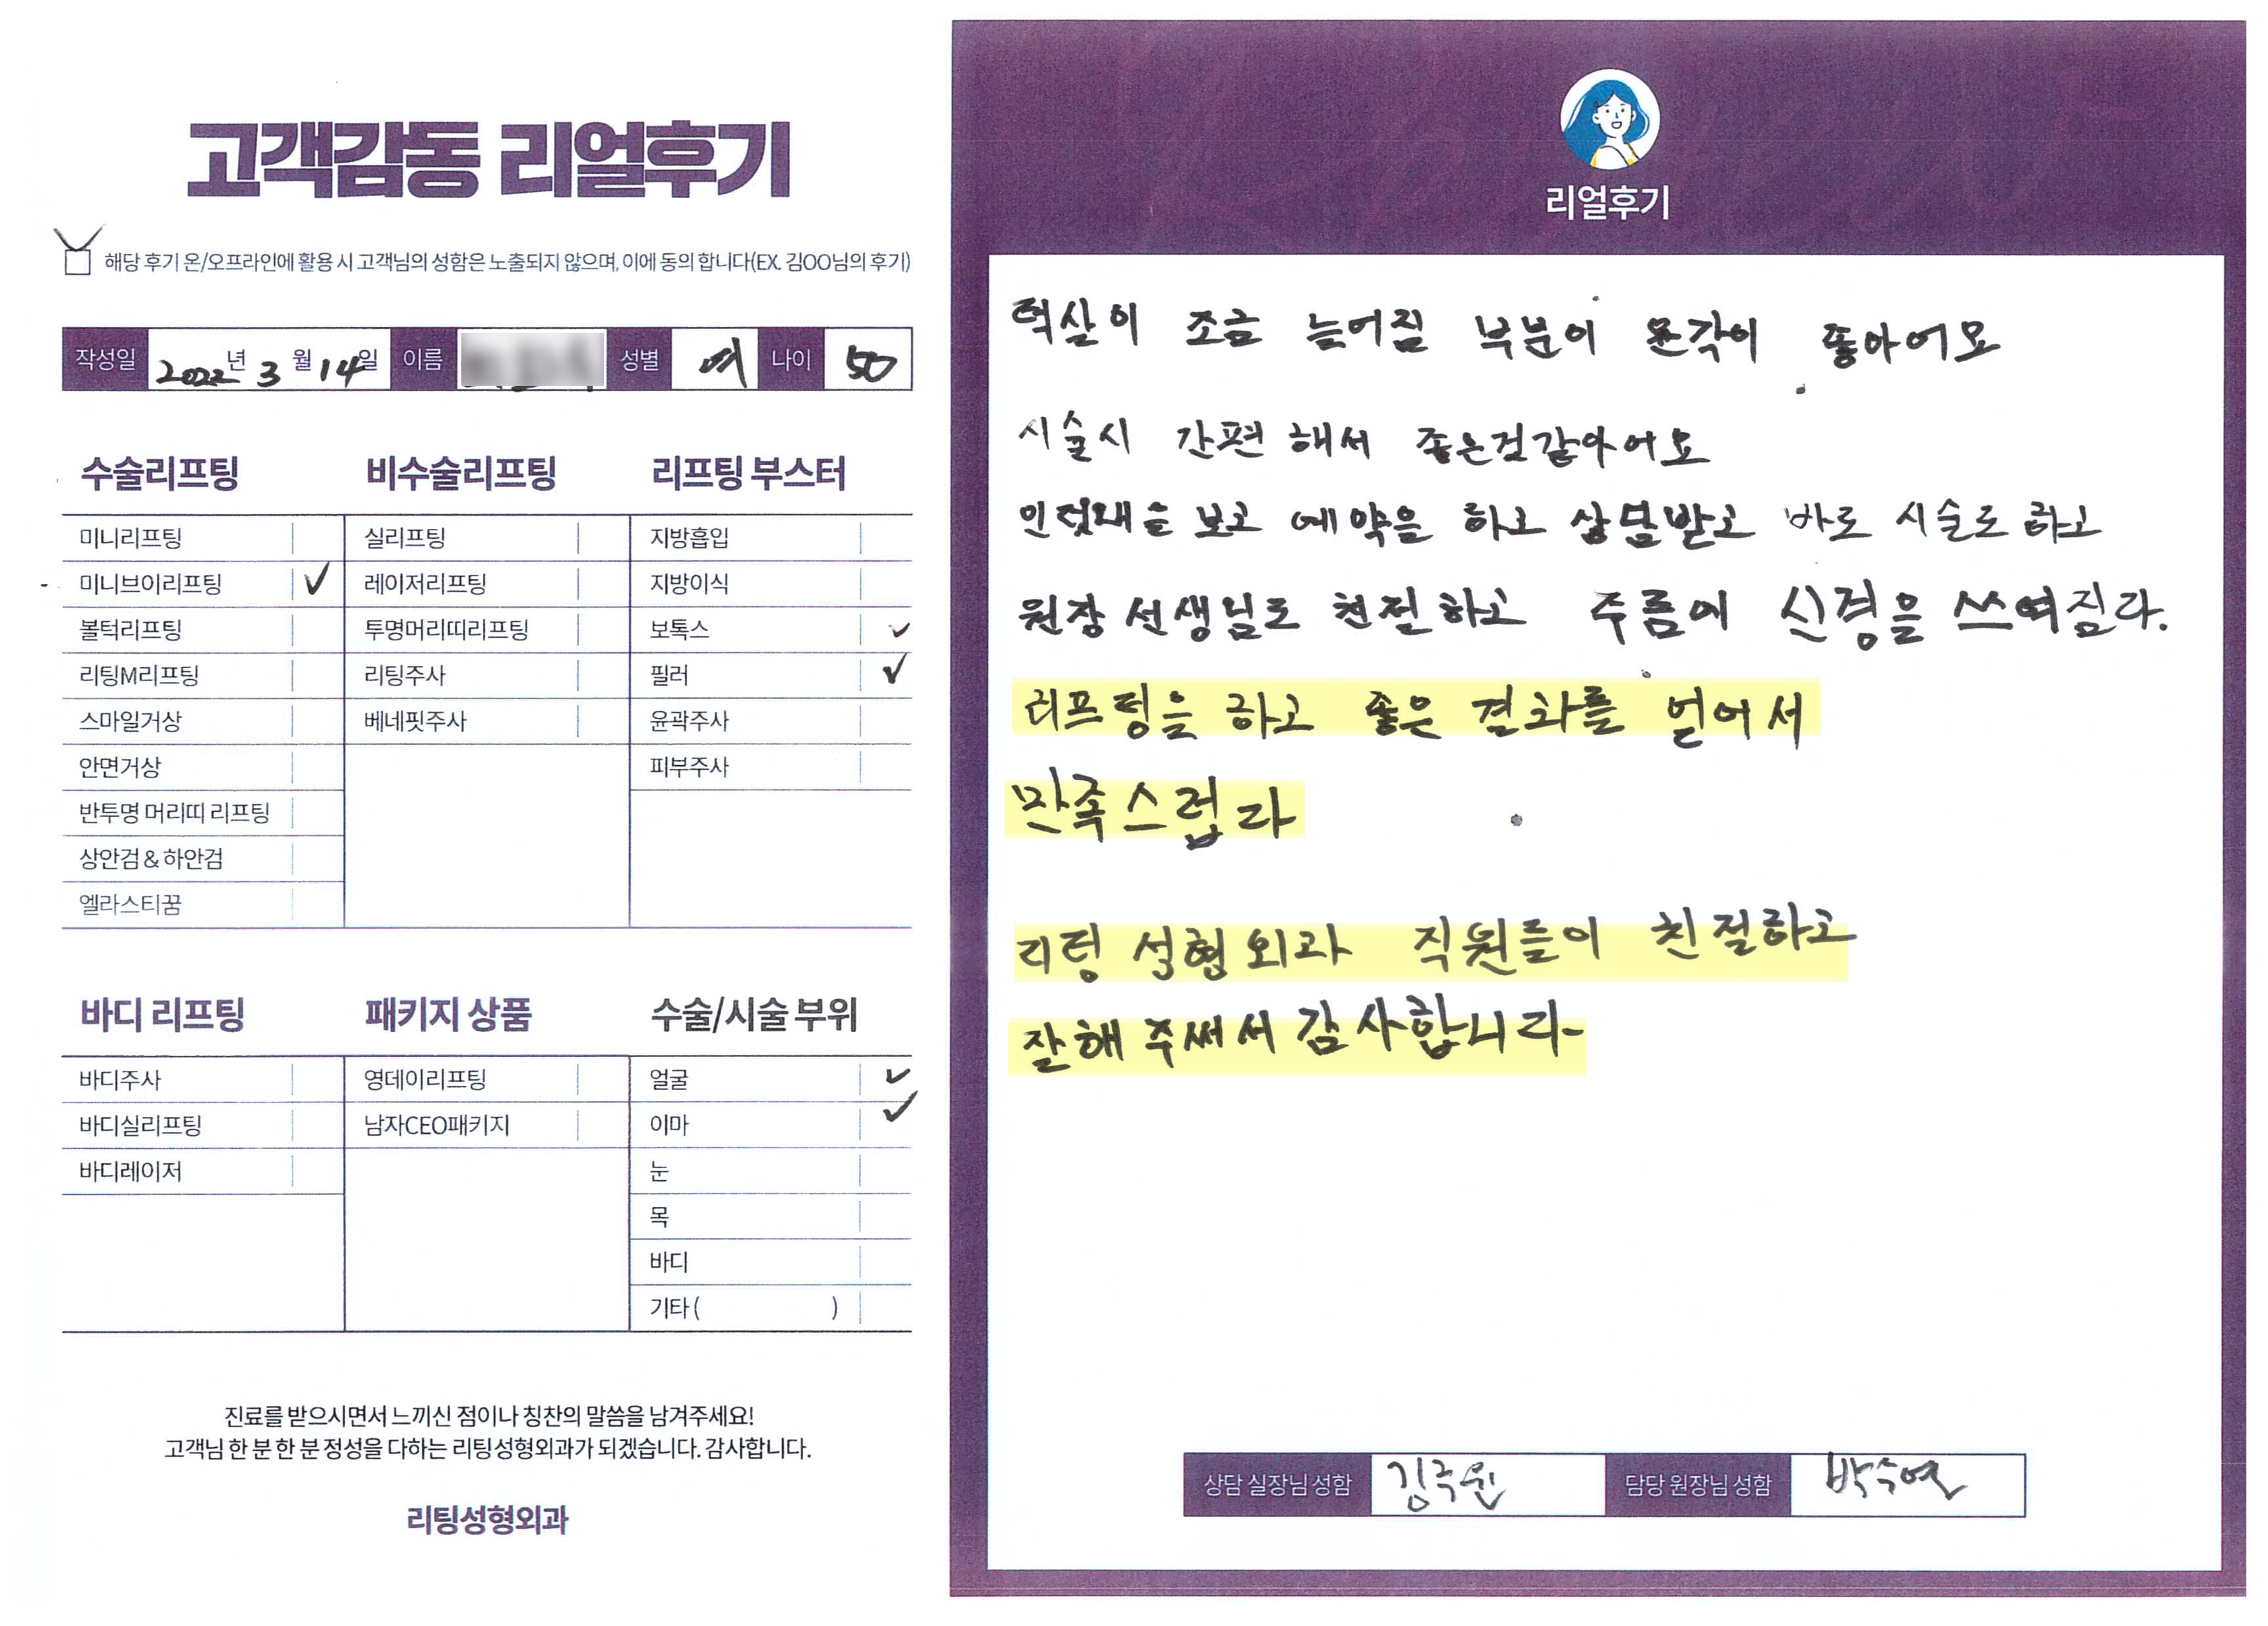 고객감동 리얼후기
해당 후기 온/오프라인에 활용 시 고객님의 성함은 노출되지 않으며, 이에 동의 합니다(EX. 김OO님의 후기)
작성일 2022년 3월 14일 이름 성별 여 나이 50
수술리프팅
미니리프팅
미니브이리프팅 ✓
볼턱리프팅
리팅M리프팅
스마일거상
안면거상
반투명 머리띠 리프팅
상안검 & 하안검
엘라스티꿈
비수술리프팅
실리프팅
레이저리프팅
투명머리띠리프팅
리팅주사
베네핏주사
리프팅 부스터
지방흡입
지방이식
보톡스 ✓
필러 ✓
윤곽주사
피부주사
바디 리프팅
바디주사
바디실리프팅
바디레이저
패키지 상품
영데이리프팅
남자CEO패키지
수술/시술 부위
얼굴 ✓
이마 ✓
눈
목
바디
기타 ( )
진료를 받으시면서 느끼신 점이나 칭찬의 말씀을 남겨주세요!
고객님 한 분 한 분 정성을 다하는 리팅성형외과가 되겠습니다. 감사합니다.
리팅성형외과
리얼후기
턱살이 조금 늘어질 부분이 윤각이 좋아어요
시술시 간편 해서 좋은것같아어요
보고 예약을 하고 상담받고 바로 시술로 하고
원장 선생님도 친절하고 주름에 신경을 쓰여짐다.
리프팅을 하고 좋은 결화를 얻어서
만족스럽다
리팅 성형외과 직원들이 친절하고
잘해 주써서 감사합니다-
상담 실장님 성함 김주원 담당 원장님 성함 박수열